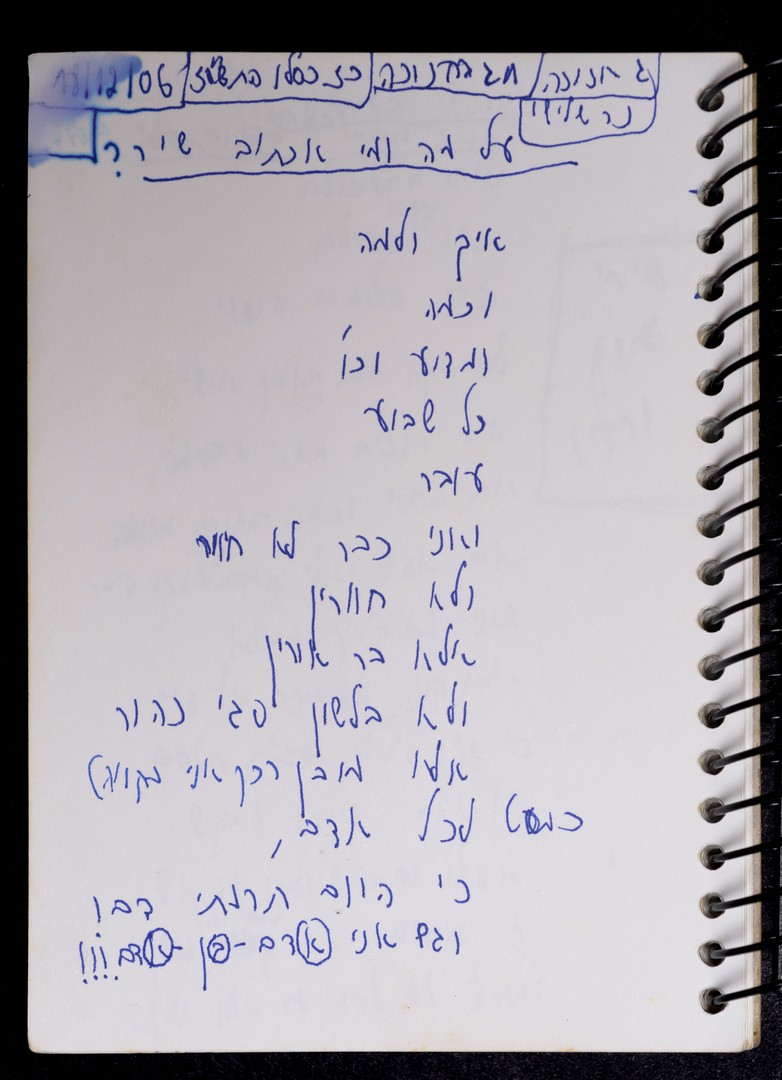 18/12/06 כז כסלו התשס"ז חג החנוכה ג' חנוכה
נר שלישי
על מה ומי אכתוב שיר?
איך ולמה
וכמה
ומדוע וכו'
כל שבוע
עובר
ואני כבר לא חיוור
ולא חוורין
אלא בר אורין
ולא בלשון סגי נהור
אלא מובן (כך אני מקווה)
כמעט לכל אדם,
כי היום תרמתי דם!
וגם אני אדם-בן-אדם!!!